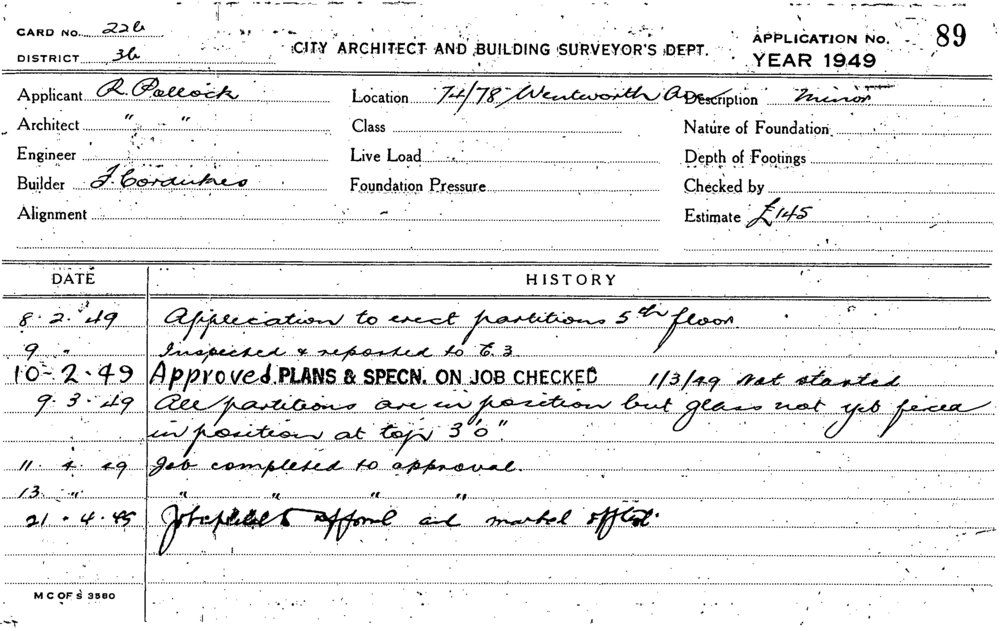 CARD NO. 226
DISTRICT 3b
CITY ARCHITECT AND BUILDING SURVEYOR'S DEPT.
APPLICATION NO. 89
YEAR 1949
Applicant R. Pollock Location 74/78 Wentworth Ave Description Minor
Architect " " Class Nature of Foundation
Engineer Live Load Depth of Footings
Builder F. Cordukes Foundation Pressure Checked by
Alignment Estimate £145
DATE HISTORY
8.2.49 Application to erect partitions 5th floor
9 " Inspected & reported to E.3
10-2-49 Approved. PLANS & SPECN. ON JOB CHECKED 1/3/49 Not started
9.3.49 All partitions are in position but glass not yet fixed
in position at top 3'0"
11 4 49 Job completed to approval.
13 " " " " "
21.4.49 Job to approval and marked off
M C OF S 3580